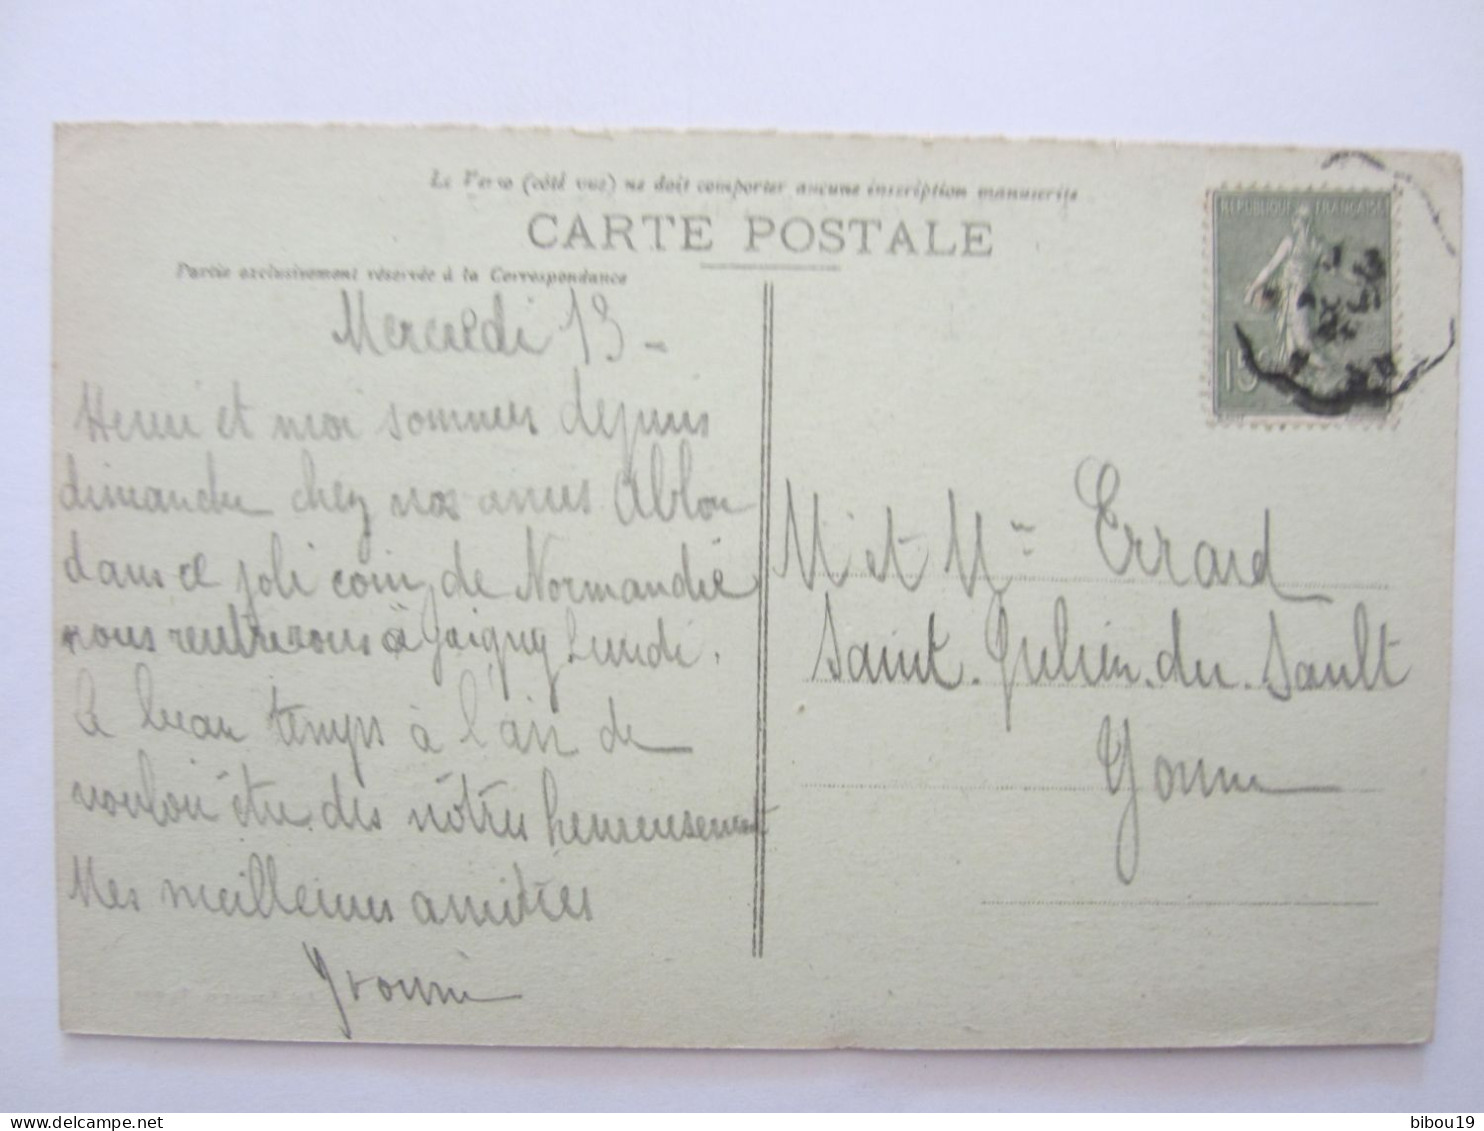 Le Verso (côté vue) ne doit comporter aucune inscription manuscrite
CARTE POSTALE
Partie exclusivement réservée à la Correspondance
RÉPUBLIQUE FRANÇAISE
15c
Mercredi 13 -
Henri et moi sommes depuis
dimanche chez nos amis Ablon
dans ce joli coin de Normandie
nous rentrerons à Joigny Lundi.
Le beau temps à l'air de
vouloir être des nôtres heureusement
Mes meilleures amitiés
Yvonne
M et Mme Errard
Saint. Julien. du. Sault
Yonne
bibou19